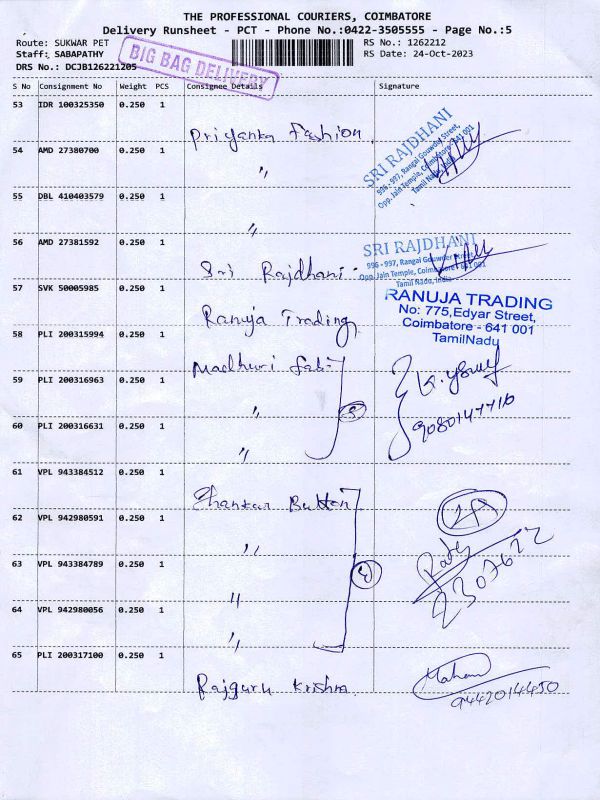 THE PROFESSIONAL COURIERS, COIMBATORE
Delivery Runsheet - PCT - Phone No.:0422-3505555 - Page No.:5
Route: SUKWAR PET
RS No.: 1262212
Staff: SABAPATHY
RS Date: 24-Oct-2023
DRS No.: DCJB126221205
BIG BAG DELIVERY
S No Consignment No Weight PCS Consignee Details Signature
53 IDR 100325350 0.250 1
Priyanka Fashion
SRI RAJDHANI
996 - 997, Rangai Gowder Street,
Opp. Jain Temple, Coimbatore - 641 001
Tamil Nadu, India
54 AMD 27380700 0.250 1
"
55 DBL 410403579 0.250 1
"
56 AMD 27381592 0.250 1
Sri Rajdhani
SRI RAJDHANI
996 - 997, Rangai Gowder Street,
Opp. Jain Temple, Coimbatore - 641 001
Tamil Nadu, India
57 SVK 50005985 0.250 1
Ranuja Trading
RANUJA TRADING
No: 775,Edyar Street,
Coimbatore - 641 001
TamilNadu
58 PLI 200315994 0.250 1
Madhuri Fab
59 PLI 200316963 0.250 1
"
9080147710
60 PLI 200316631 0.250 1
"
61 VPL 943384512 0.250 1
Shankar Button
62 VPL 942980591 0.250 1
"
2307622
63 VPL 943384789 0.250 1
"
64 VPL 942980056 0.250 1
"
65 PLI 200317100 0.250 1
Rajguru Krishna
Mohan
9442014450